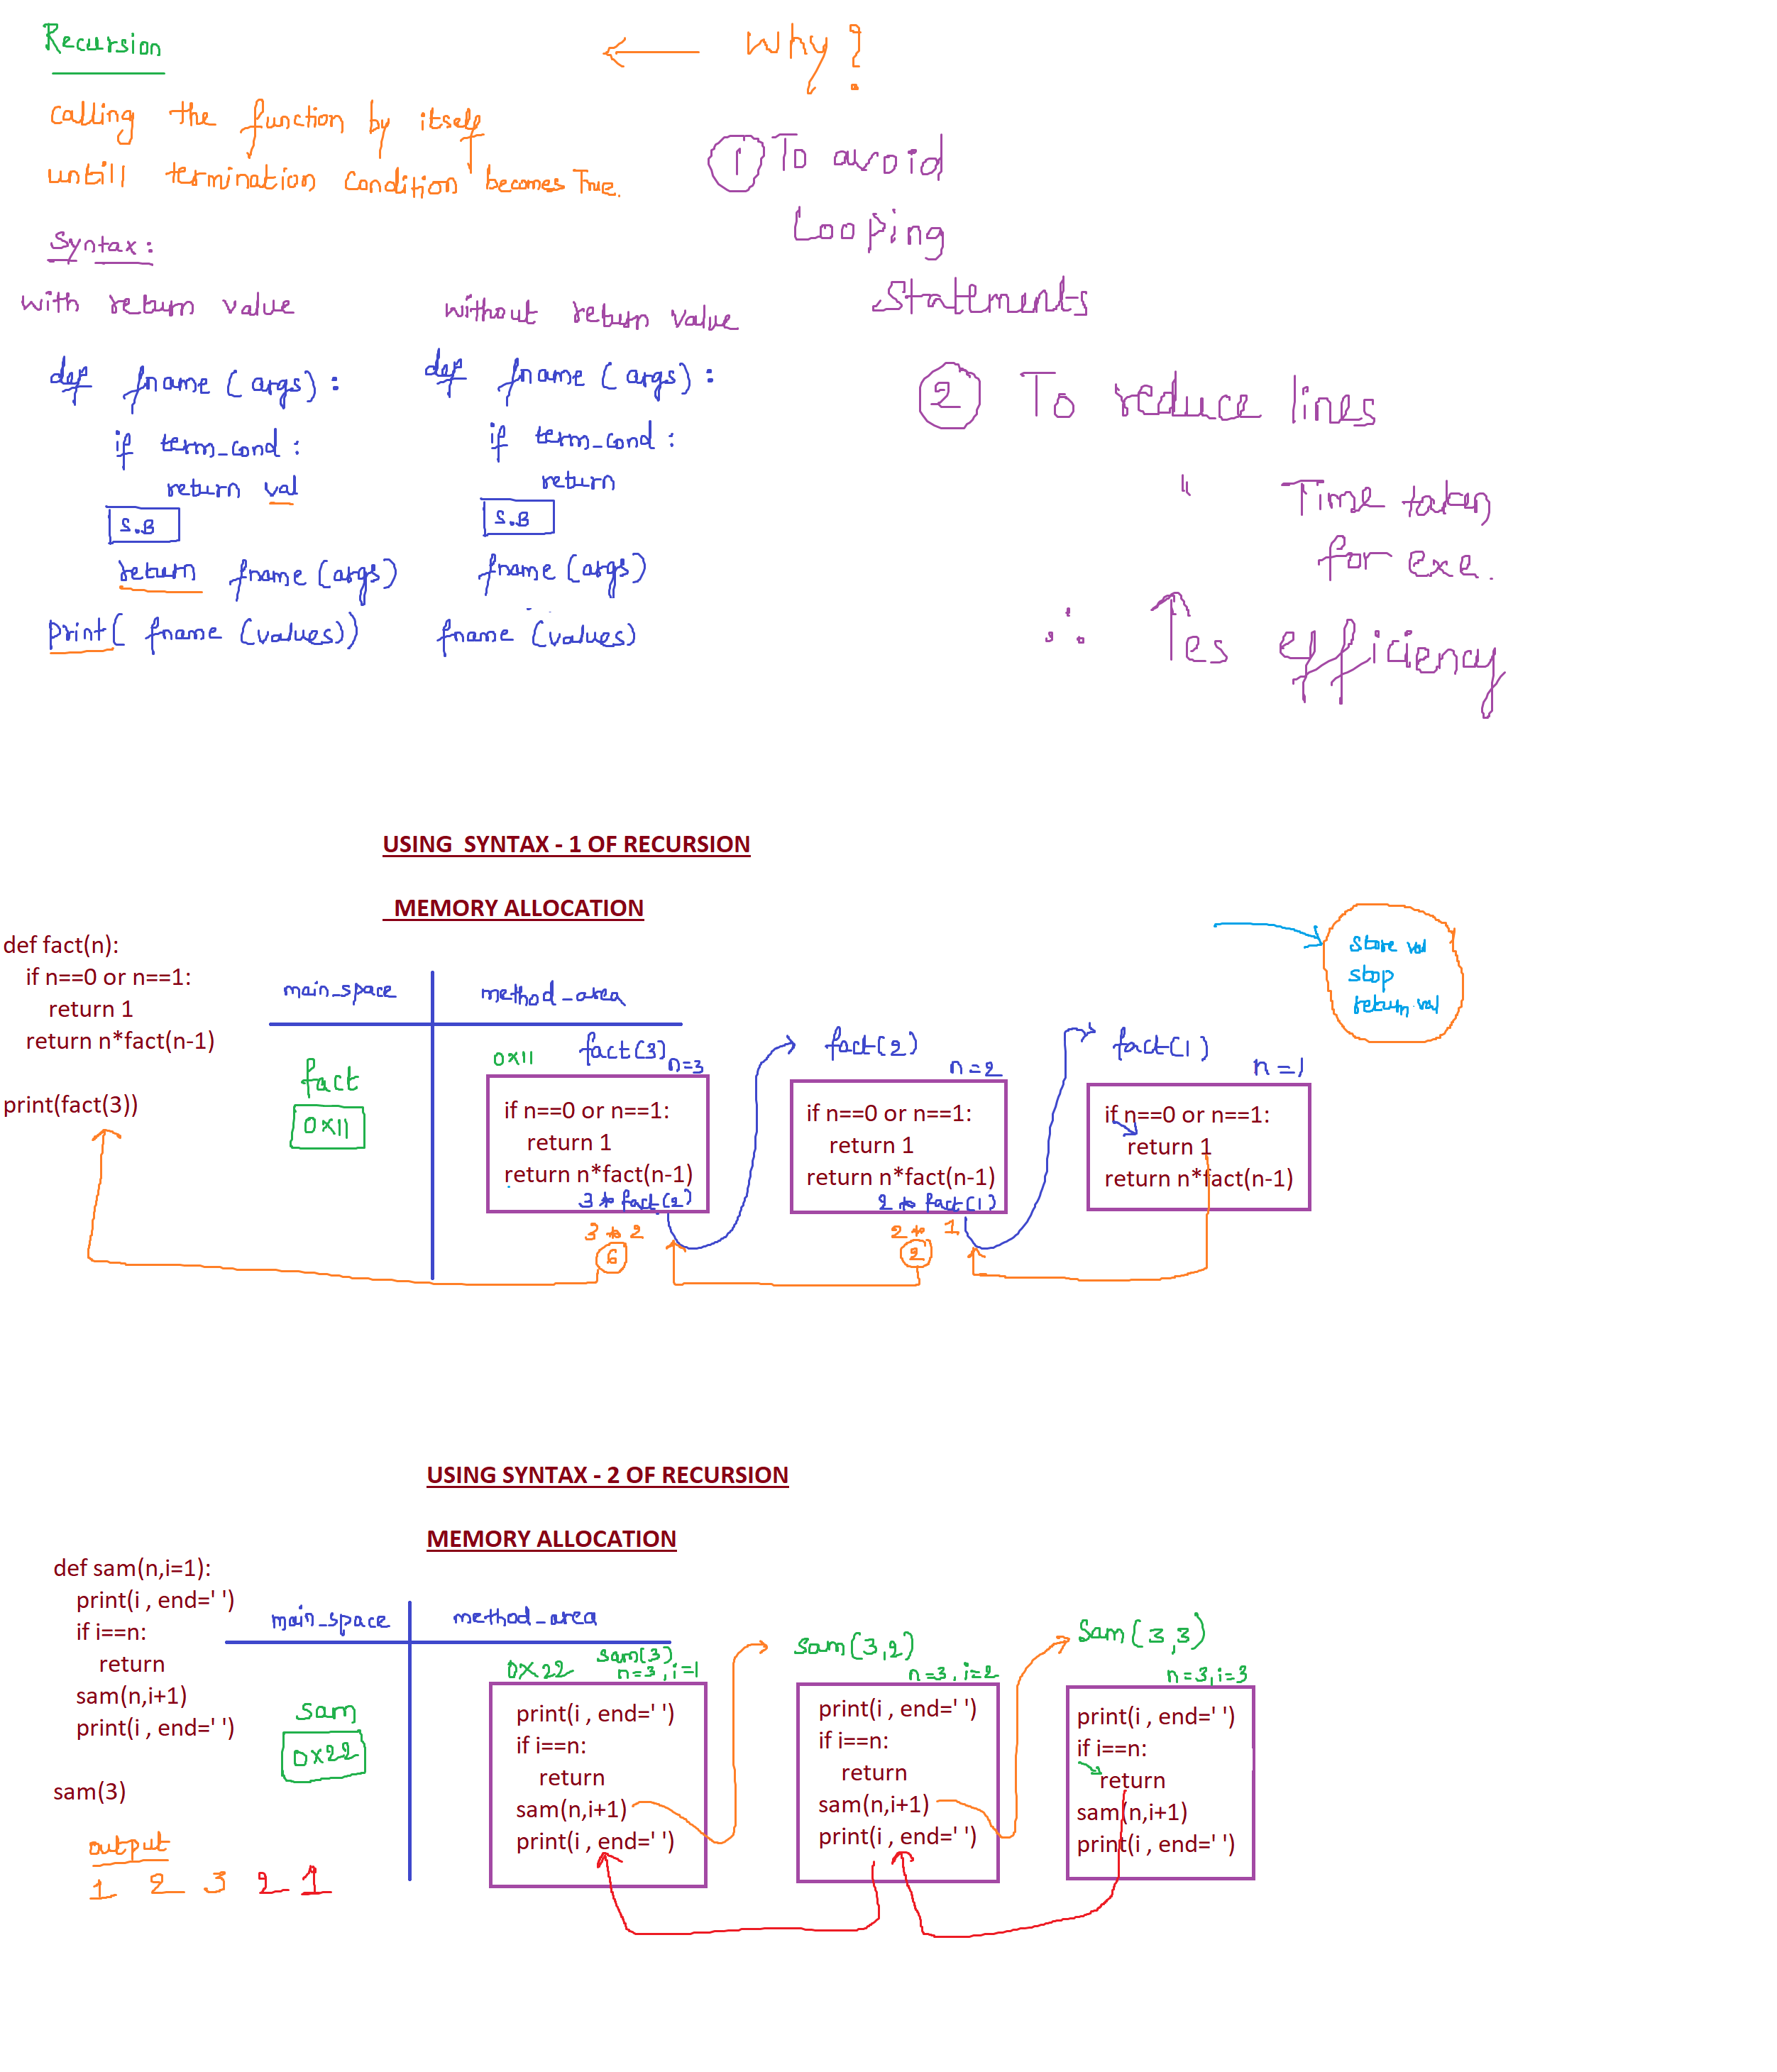 Recursion
← Why?
calling the function by itself
untill termination condition becomes True.
① To avoid
Looping
statements
② To reduce lines
" Time taken
for exe.
∴ ↑es efficiency
Syntax:
with return value
def fname (args) :
if term_cond :
return val
S.B
return fname (args)
print( fname (values))
without return value
def fname (args) :
if term_cond :
return
S.B
fname (args)
fname (values)
USING SYNTAX - 1 OF RECURSION
MEMORY ALLOCATION
def fact(n):
if n==0 or n==1:
return 1
return n*fact(n-1)
print(fact(3))
main_space
method_area
store val
stop
return val
fact
0x11
0x11
fact(3)
n=3
if n==0 or n==1:
return 1
return n*fact(n-1)
3 * fact(2)
3 * 2
6
fact(2)
n=2
if n==0 or n==1:
return 1
return n*fact(n-1)
2 * fact(1)
2 * 1
2
fact(1)
n=1
if n==0 or n==1:
return 1
return n*fact(n-1)
USING SYNTAX - 2 OF RECURSION
MEMORY ALLOCATION
def sam(n,i=1):
print(i , end=' ')
if i==n:
return
sam(n,i+1)
print(i , end=' ')
sam(3)
output
1 2 3 2 1
main_space
method_area
sam
0x22
0x22
sam(3)
n=3, i=1
print(i , end=' ')
if i==n:
return
sam(n,i+1)
print(i , end=' ')
sam(3,2)
n=3, i=2
print(i , end=' ')
if i==n:
return
sam(n,i+1)
print(i , end=' ')
sam(3,3)
n=3,i=3
print(i , end=' ')
if i==n:
return
sam(n,i+1)
print(i , end=' ')